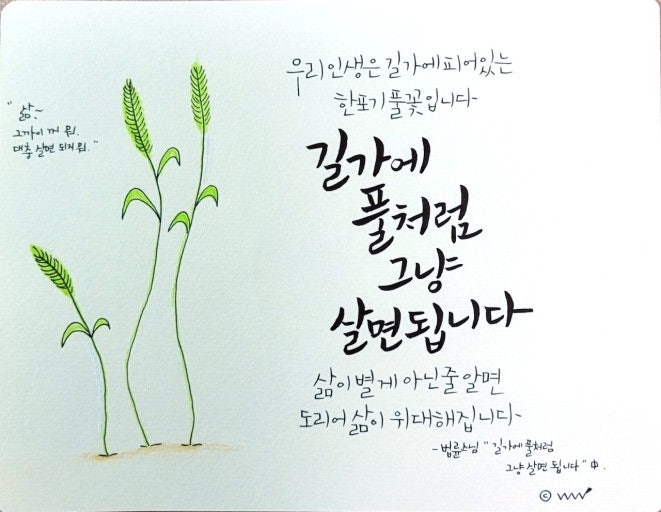 " 삶~
그까이 꺼 뭐.
대충 살면 되지 뭐. "
우리 인생은 길가에 피어있는
한포기 풀꽃입니다-
길가에
풀처럼
그냥
살면 됩니다
삶이 별게 아닌줄 알면
도리어 삶이 위대해집니다-
-법륜스님 " 길가에 풀처럼
그냥 살면 됩니다 " 中.
©